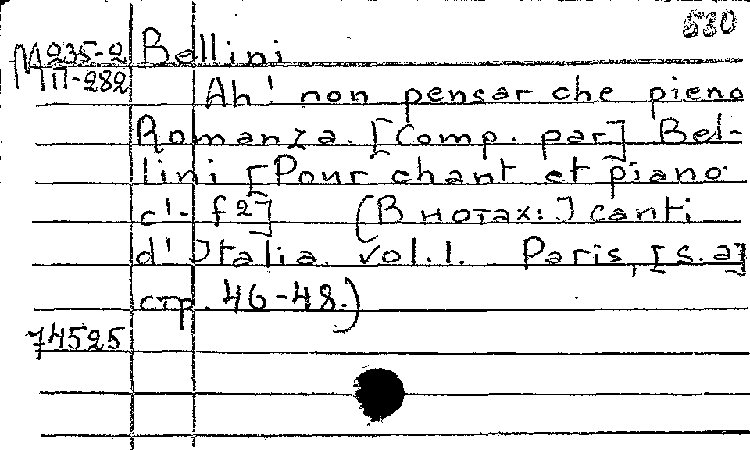 530
М 235-2 Bellini
П-282 Ah! non pensar che pieno
Romanza. [Comp. par] Bel-
lini [Pour chant et piano
c'- f2] (В нотах: I canti
d'Italia. Vol. 1. Paris, [s.a]
стр. 46-48.)
74525